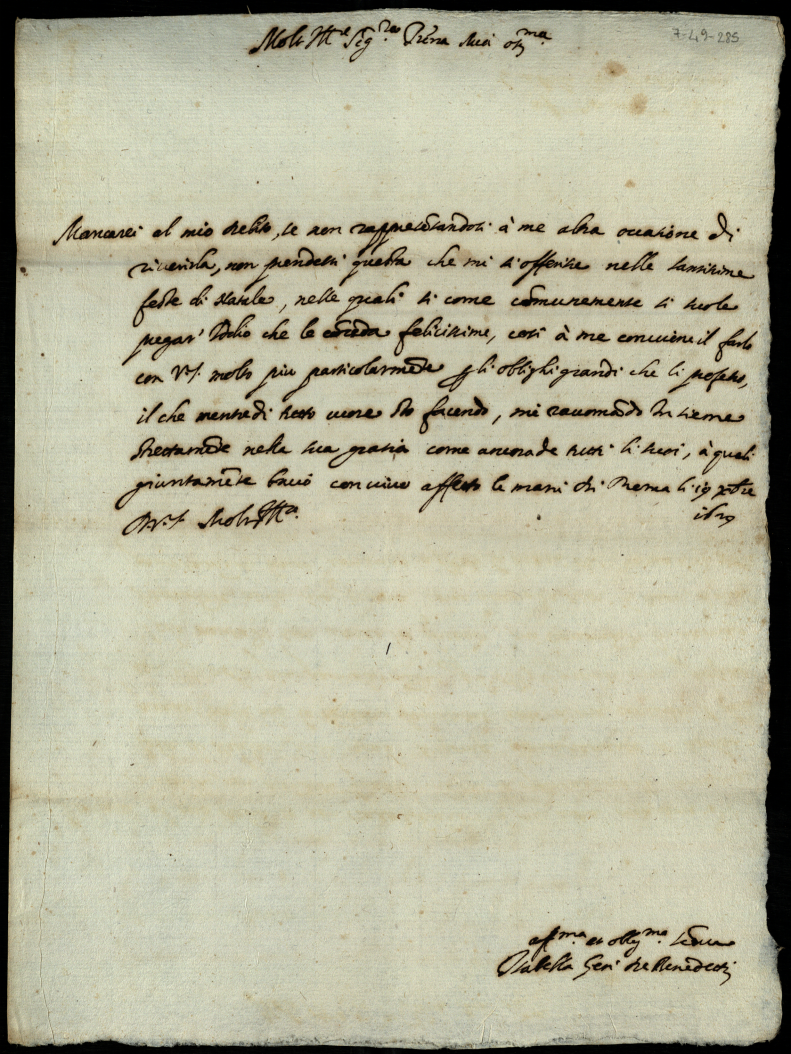 Molt' Ill.e Sig.ra Pr̃ona mia oss.ma
7-49-285
Mancarei al mio debito, se non rappresẽtandosi à me altra occasione di
riverirla, non prendessi questa che mi s'offerisce nelle santissime
feste di Natale, nelle quali si come comunemente si suole
pregar' Iddio che le cõceda felicissime, così à me conviene il farlo
con V.S. molto piu particolarmẽte p gli oblighi grandi che li professo,
il che mentre di tutto cuore sto facendo, mi racomãdo insieme
strettamẽte nella sua gratia come ancora de tutti li suoi, à quali
giuntamẽte bacio con vivo affetto le mani di Roma li 19 xbre
Di V.S. Molto Ill.e 1629
aff.ma et oblig.ma
Isabella Geri de Benedetti